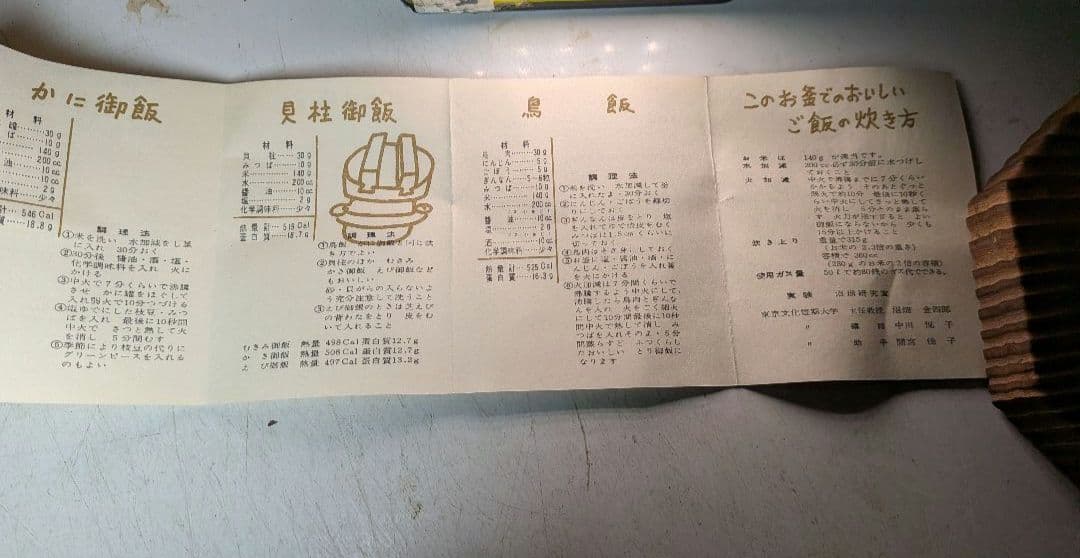 かに御飯
材料
30g
10g
140g
200cc
10cc
10cc
2g
少々
546 Cal
18.8g
調理法
①米を洗い 水加減をし釜
に入れ 30分おく
②30分後 醤油・酒・塩・
化学調味料を入れ 火に
かける
③中火で7分くらいで沸騰
させ かに罐をほぐして
入れ弱火で10分つづける
④塩ゆでにした枝豆・みつ
ばを入れ 最後に10秒間
中火で さっと熱して火
を消し 5分間むす
⑤季節により枝豆の代りに
グリーンピースを入れる
のもよい
貝柱御飯
材料
貝柱……30g
みつば……10g
米……140g
水……200cc
醤油……10cc
塩……2g
化学調味料……少々
熱量計…519Cal
蛋白質…18.7g
調理法
①鳥飯、かに御飯と同じ炊
き方でよい
②貝柱のほか むきみ
かき御飯 えび御飯など
もおいしい
砂・貝がらの入らないよ
う充分注意して洗うこと
③えび御飯のときは芝えび
の背わたをとり 皮をむ
いて入れること
むきみ御飯 熱量 498Cal 蛋白質12.7g
かき御飯 熱量 506Cal 蛋白質12.7g
えび御飯 熱量 497Cal 蛋白質13.2g
鳥飯
材料
鳥肉……30g
にんじん……5g
ごぼう……5g
ぎんなん…5~6粒
みつば……10g
米……140g
水……200cc
醤油……10cc
塩……2g
酒……10cc
化学調味料……少々
熱量計…525Cal
蛋白質…16.3g
調理法
①米を洗い、水加減して釜
に入れたまゝ30分おく
②にんじん・ごぼうを細切
りにしておく
③ぎんなんは皮をとり、塩
を入れてゆで渋皮をむく
みつばは1.5cmくらいに
切っておく
④鳥肉はそぎ身にしておく
⑤お釜に酒・醤油・塩・に
んじん・ごぼうを入れ釜
を火にかける
⑥火加減は7分間くらいで
沸騰するよう中火にして、
沸騰したら鳥肉とぎんな
んを入れ 火をごく細火
にして10分間最後に10秒
間中火で熱して消し み
つばを入れそのまゝ5分
間蒸らすと ふっくらし
たおいしい とり御飯に
なります
このお釜でのおいしい
ご飯の炊き方
お米は 140gが適当です。
水加減 200cc必ず30分前に水つけし
ておくこと
火加減 中火で沸騰までに7分くらい
かかるよう、そのあとぐっと
弱火で約10分 最後に10秒く
らい中火にしてさっと熱して
火を消し 5分そのまま蒸ら
す 火力が強すぎると よい
御飯にならないから 少くも
15分以上かけること
炊き上り 重量で315g
(お米の2.3倍の重さ)
容積で360cc
(280gのお米の2倍の容積)
使用ガス量 50lで約80銭のガス代でできる。
実験 沼畑研究室
東京文化短期大学 主任教授 沼畑金四郎
〃 講師 中川悦子
〃 助手 間宮佳子